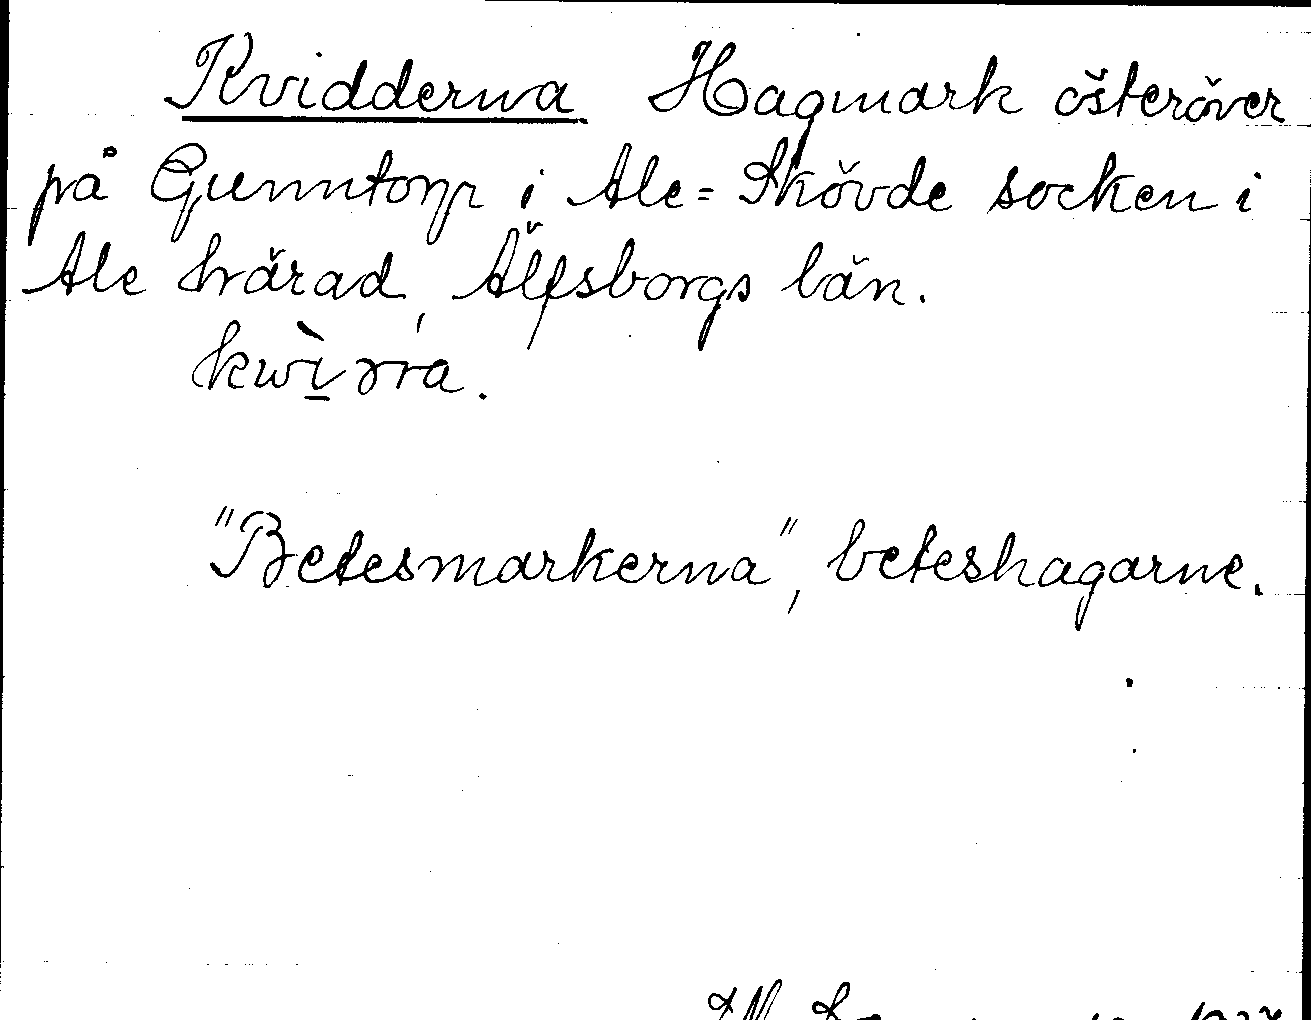 Kvidderna Hagmark österöver
på Gunntorp i Ale=Skövde socken i
Ale härad, Älfsborgs län.
kwìrra.
"Betesmarkerna", beteshagarne.